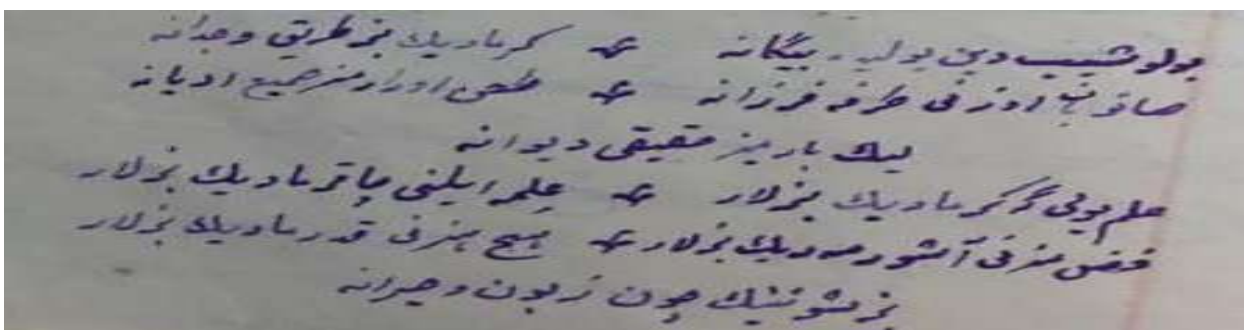 بولوشیب دین یولیدہ بیگانه * کرمادیك بز طریق وجدانه
صانو بیز اوزنی طرفه فرزانه * طعن اورارمز جمیع ادیانه
لیك باریمز حقیقی دیوانه
علم یولی گر کرمادیك بزلار * علم اهلینی یاقرمادیك بزلار
نفسمزنی آشورمەدیك بزلار * هیچ هنرنی قدرمادیك بزلار
بز شونینك چون زبون و حیرانه